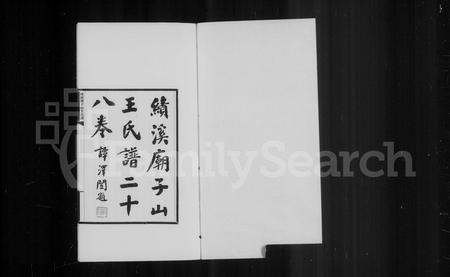 績溪廟子山
王氏譜二十
八卷 譚澤闓題
FamilySearch